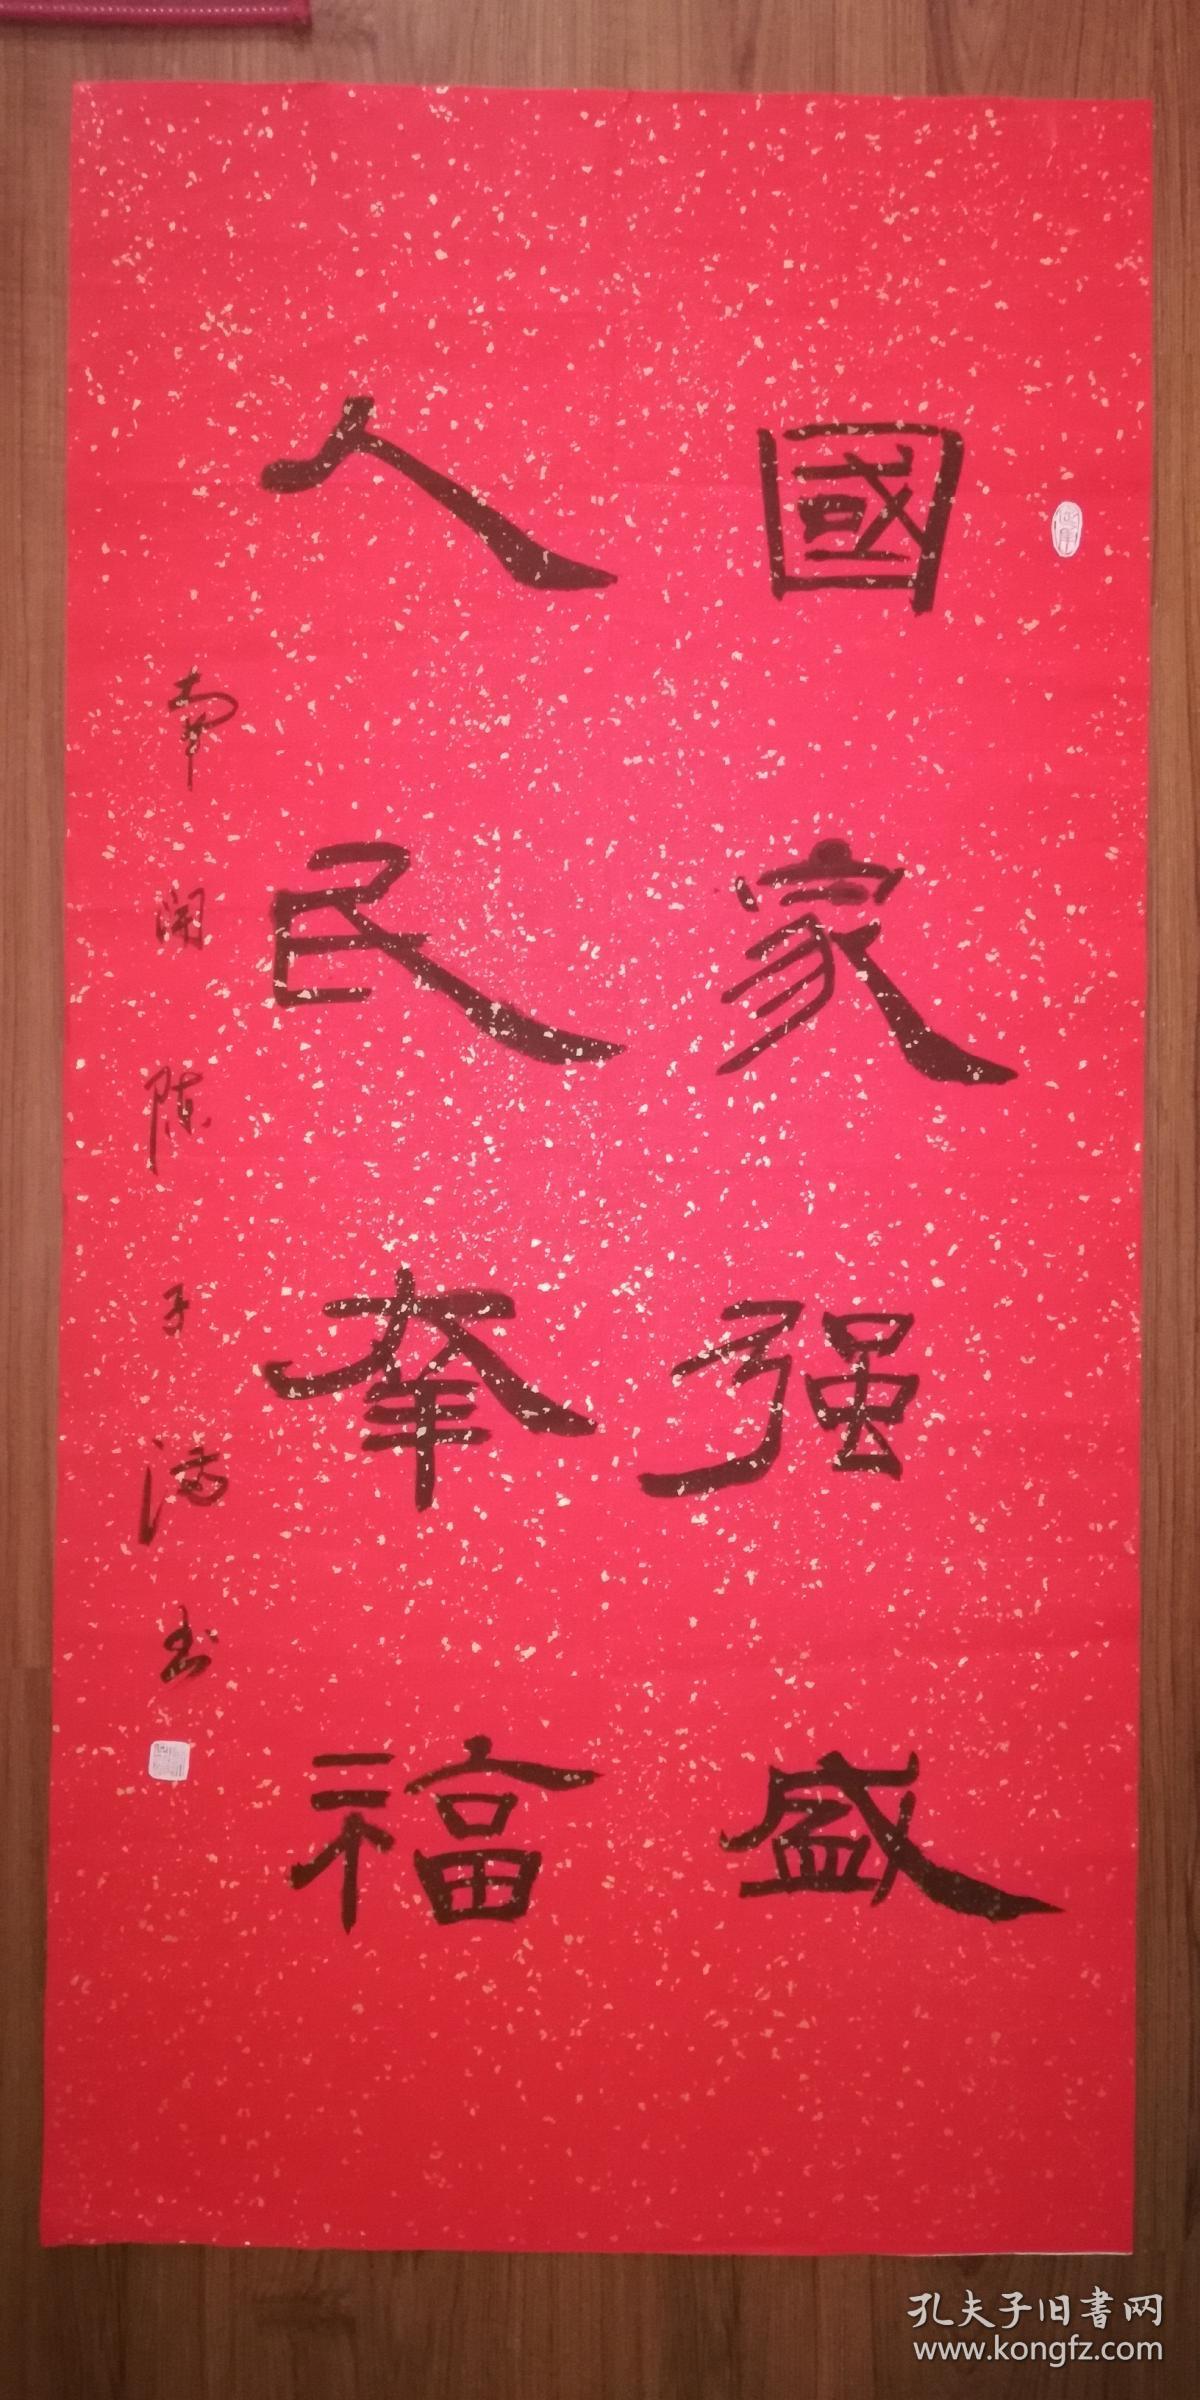 國家强盛
人民幸福
南開陈子书
孔夫子旧書网
www.kongfz.com